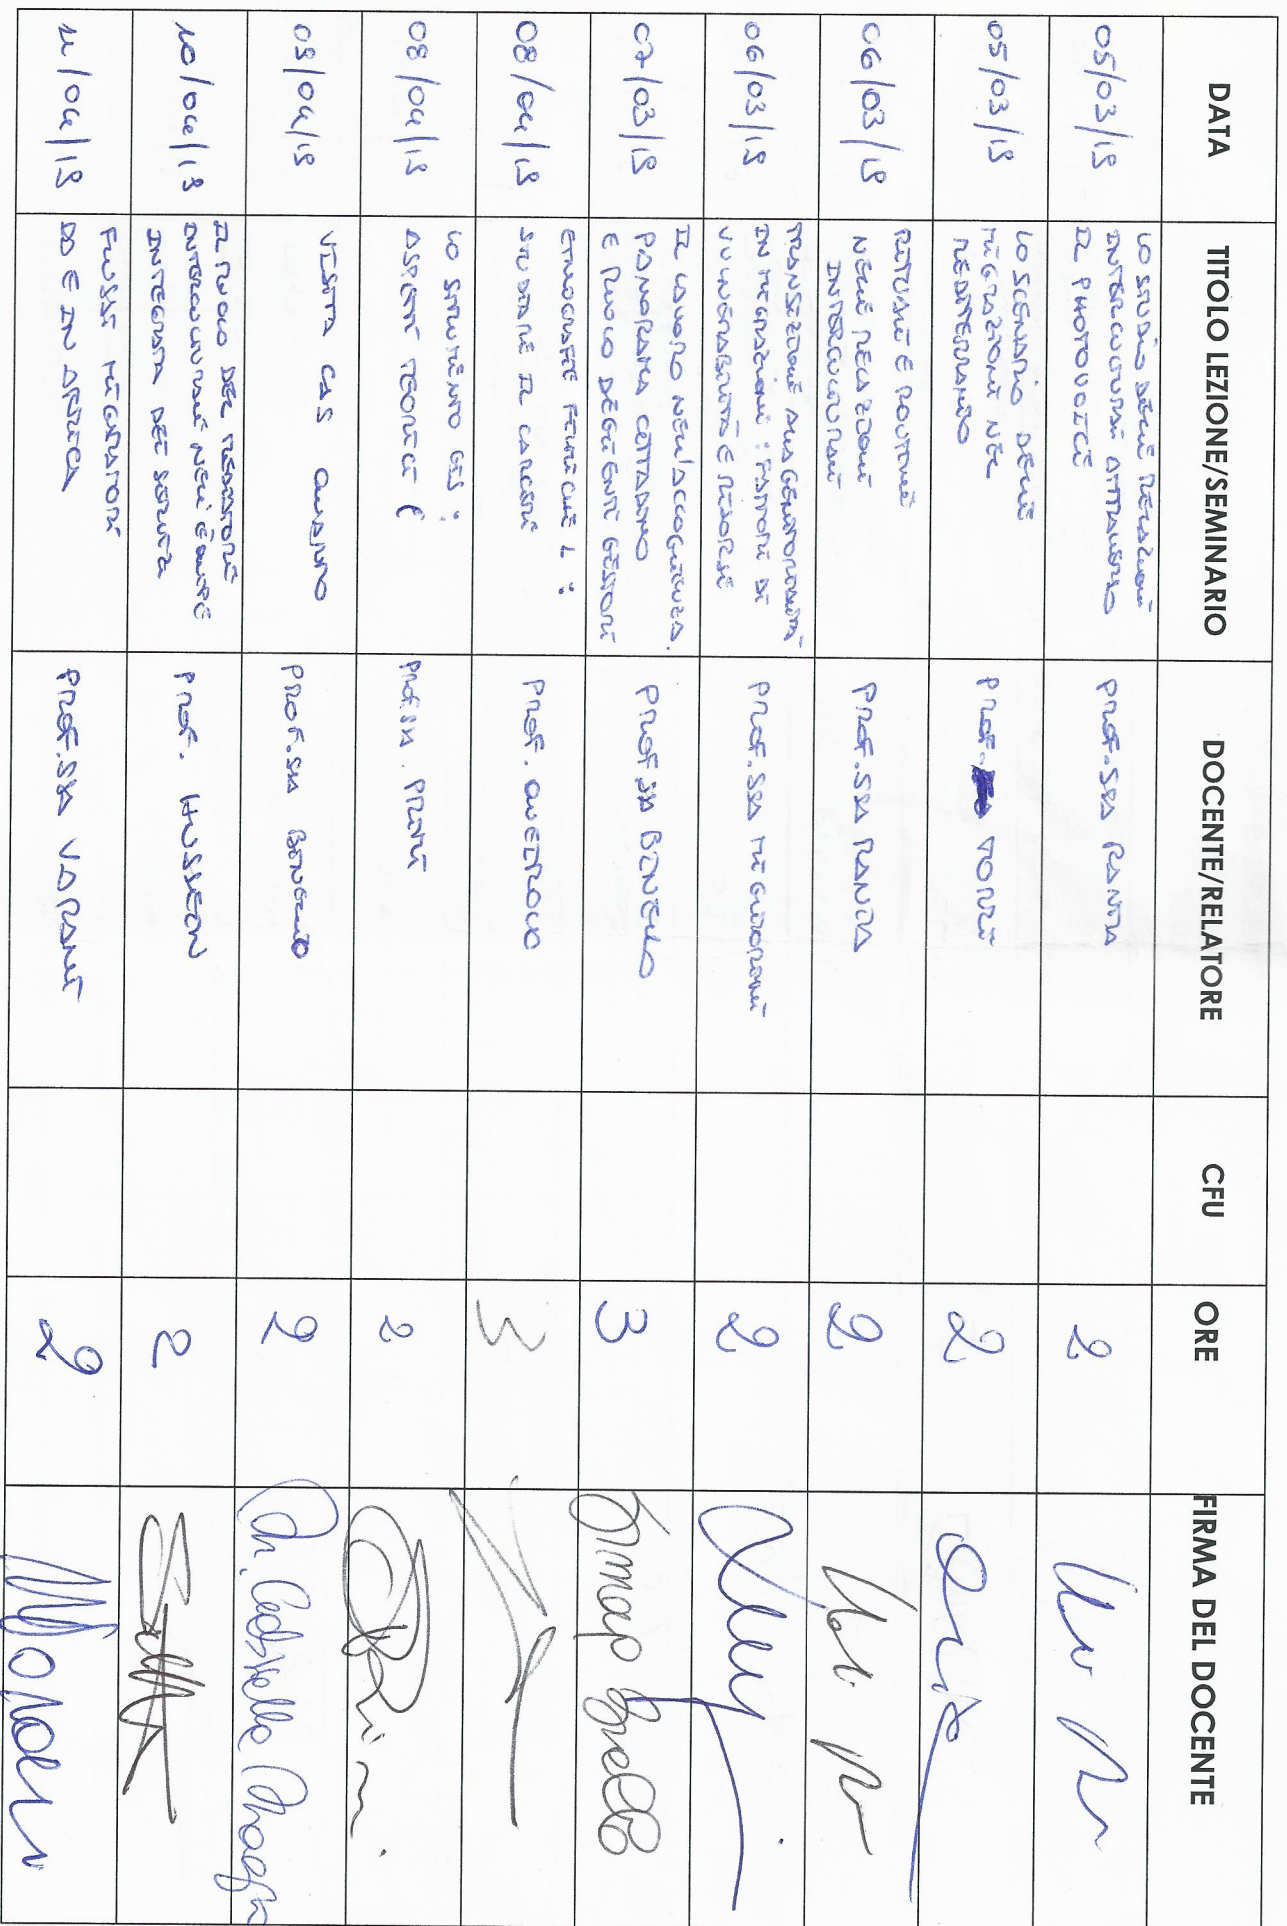 DATA
TITOLO LEZIONE/SEMINARIO
DOCENTE/RELATORE
CFU
ORE
FIRMA DEL DOCENTE
05/03/19
LO STUDIO DELLE RELAZIONI
INTERCULTURALI ATTRAVERSO
IL PHOTOVOICE
PROF.SSA RANTA
2
05/03/19
LO SCENARIO DELLE
MIGRAZIONI NEL
MEDITERRANEO
PROF. TORRE
2
06/03/19
RITUALI E ROUTINE
NELLE RELAZIONI
INTERCULTURALI
PROF.SSA RANTA
2
06/03/19
TRANSIZIONE ALLA GENITORIALITÀ
IN MIGRAZIONE: FATTORI DI
VULNERABILITÀ E RISORSE
PROF.SSA MIGLIORINI
2
07/03/19
IL LAVORO NELL'ACCOGLIENZA.
PANORAMA CITTADINO
E RUOLO DEGLI ENTI GESTORI
PROF.SSA BINELLO
3
08/04/19
ETNOGRAFIE FENICHE 1:
STUDIARE IL CARCERE
PROF. QUEIROLO
3
08/04/19
LO STRUMENTO GIS:
ASPETTI TEORICI (
PROF.SSA PRIMI
2
09/04/19
VISITA CAS QUARTO
PROF.SSA
2
10/04/19
IL RUOLO DEL MEDIATORE
INTERCULTURALE NELL'ÉQUIPE
INTEGRATA DEI SERVIZI
PROF. HUSSEIN
2
11/04/19
FLUSSI MIGRATORI
DA E IN AFRICA
PROF.SSA VARANI
2